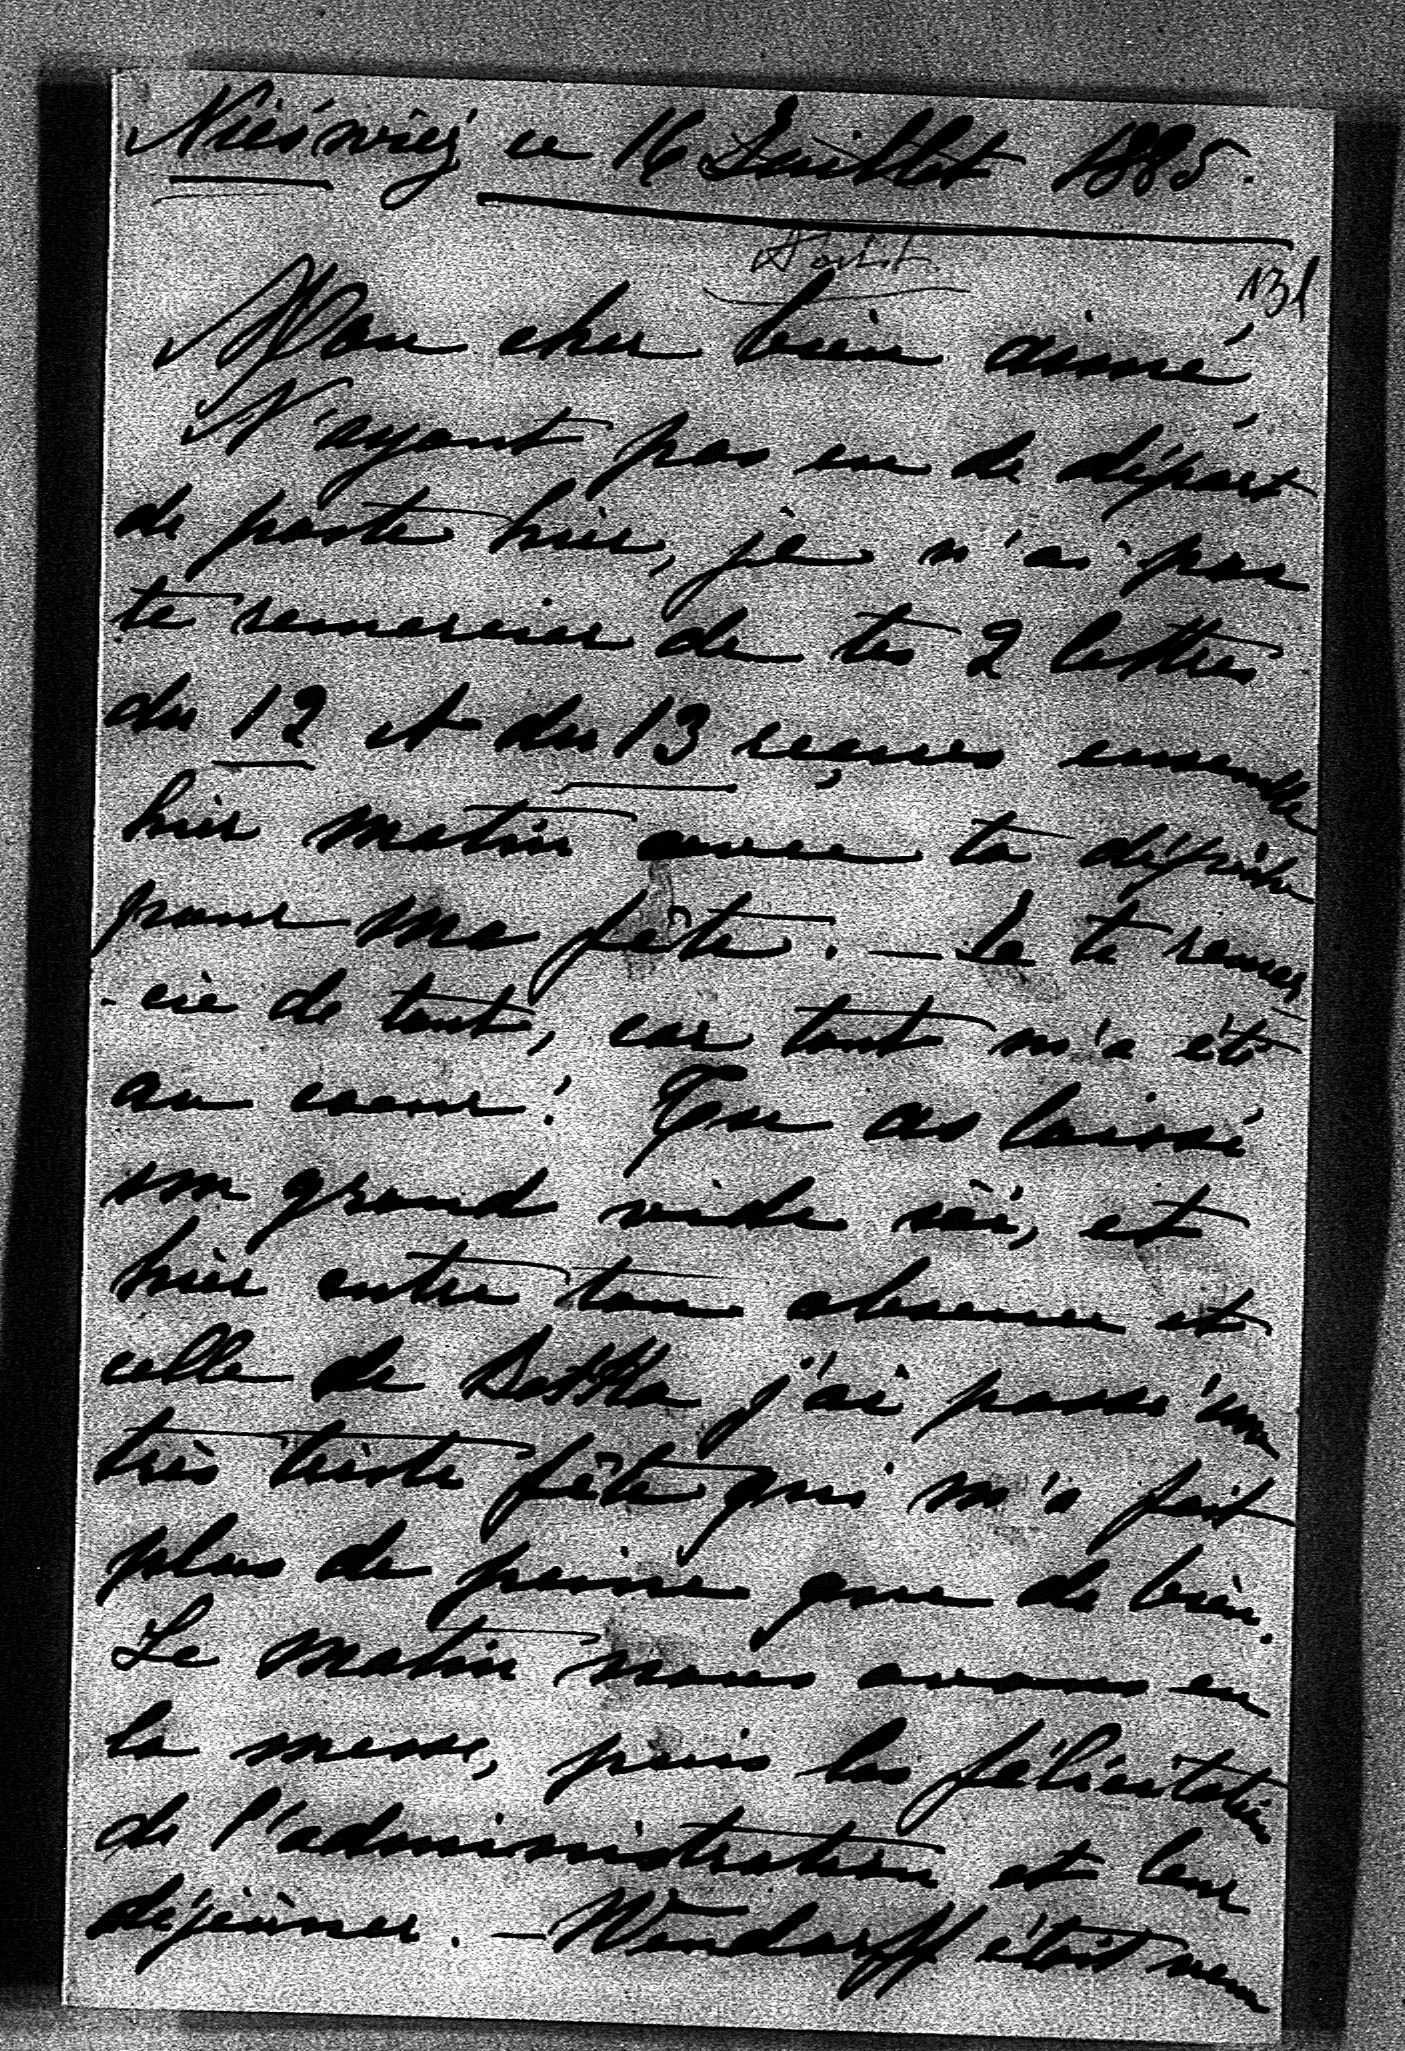 Nieśwież ce 16 Juillet 1885.
Août
131
Mon cher bien aimé,
N'ayant pas eu de départ
de poste hier, je n'ai pas
te remercier de tes 2 lettres
du 12 et du 13 reçues ensemble
hier matin avec ta dépêche
pour ma fête. — Je te remer
- cie de tout, car tout m'a été
au coeur! Tu as laissé
un grand vide ici, et
hier entre ton absence et
celle de j'ai passé une
très triste fête qui m'a fait
plus de peine que de bien.
Le matin nous avons eu
la messe, puis les félicitations
de l'administration et leur
déjeûner. — Wendorff était venu